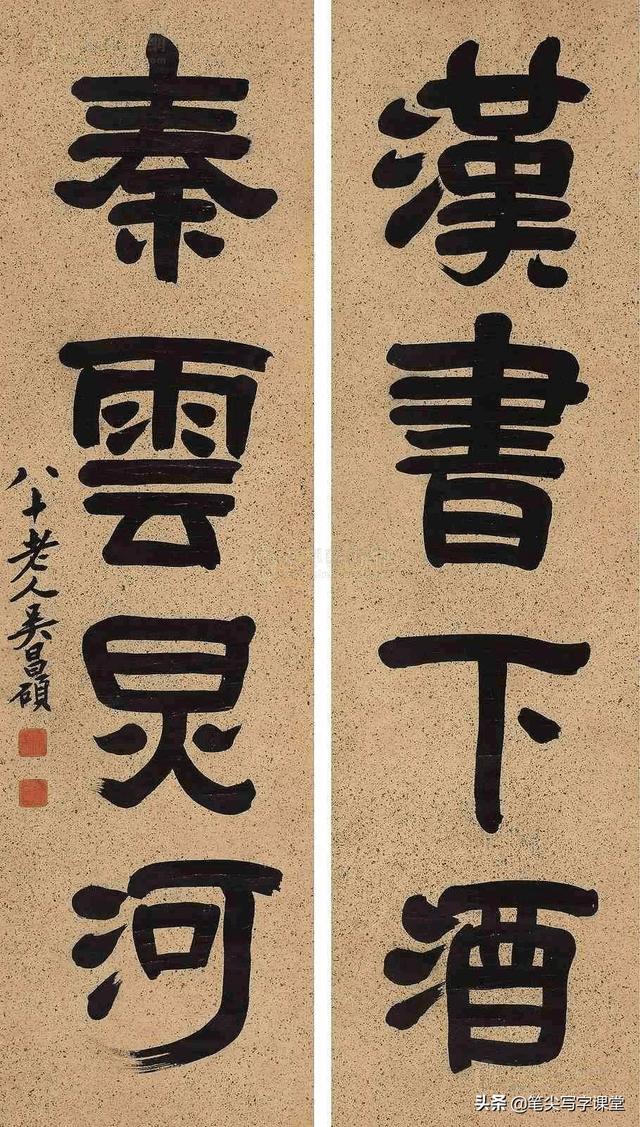 漢書下酒
秦雲炅河
八十老人吳昌碩
头条 @笔尖写字课堂